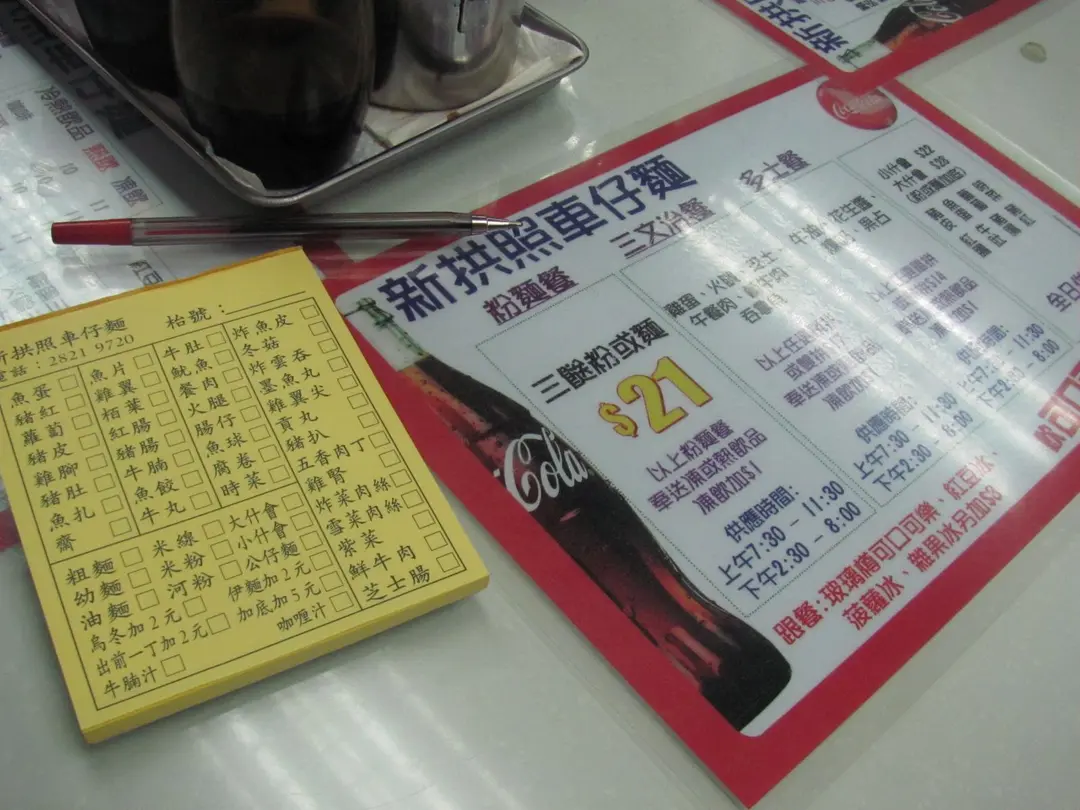 新拱照車仔麵
枱號：
電話：2821 9720
魚蛋
豬紅
蘿蔔
豬皮
雞腳
豬肚
魚扎
齋
魚片
雞翼
栢菜
紅腸
豬腸
牛腩
魚餃
牛丸
牛肚
魷魚
餐肉
火腿
腸仔
魚球
腐卷
時菜
炸魚皮
冬菇
炸雲吞
墨魚丸
雞翼尖
貢丸
豬扒
五香肉丁
雞腎
炸菜肉絲
雪菜肉絲
紫菜
鮮牛肉
芝士腸
粗麵
幼麵
油麵
烏冬加2元
出前一丁加2元
牛腩汁
米線
米粉
河粉
大什會
小什會
公仔麵
伊麵加2元
加底加5元
咖喱汁
新拱照車仔麵
粉麵餐
三餸粉或麵
$21
以上粉麵餐
奉送凍或熱飲品
凍飲加$1
供應時間:
上午7:30 - 11:30
下午2:30 - 8:00
三文治餐
雞蛋、火腿、芝士
午餐肉、鹹牛肉
吞拿魚
供應時間:
上午7:30 - 11:30
下午2:30 - 8:00
多士餐
牛油、花生醬、
供應時間:
上午7:30 - 11:30
下午2:30 - 8:00
小什會 $22
大什會 $28
跟餐:玻璃樽可口可樂、紅豆冰、
菠蘿冰、雜果冰另加$3
Coca-Cola
Cola
新拱
冷熱飲品
熱飲
凍飲